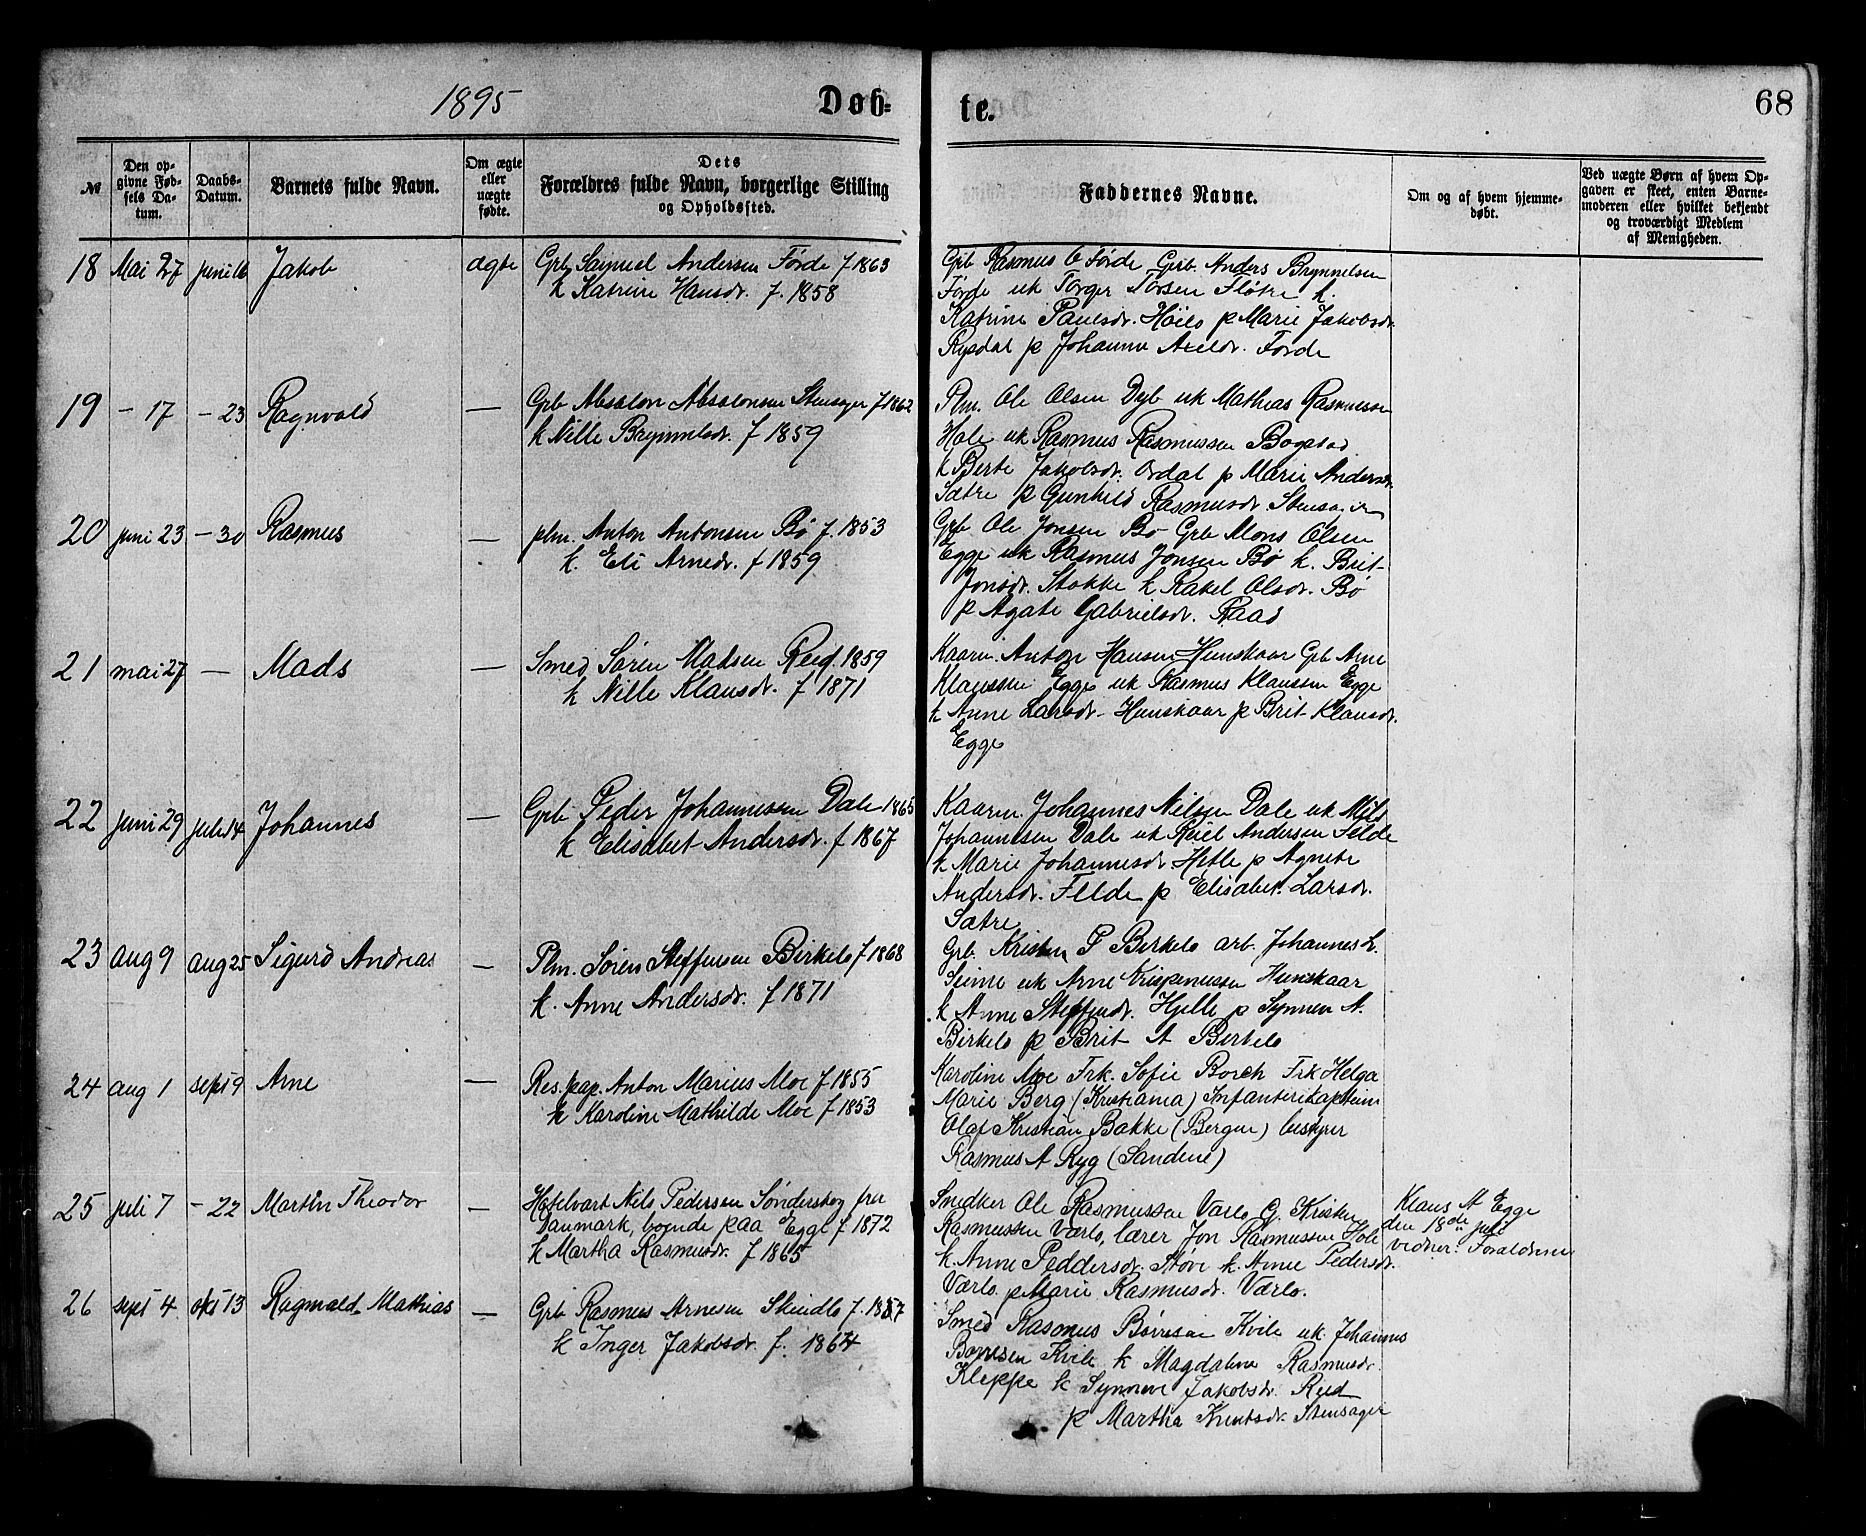 1895 Døb-
te. 68
№
Den op-
givne Fød-
sels Da-
tum.
Daabs-
Datum.
Barnets fulde Navn.
Om ægte
eller
uægte
fødte.
Dets
Forældres fulde Navn, borgerlige Stilling
og Opholdssted.
Faddernes Navne.
Om og af hvem hjemme-
døbt.
Ved uægte Børn af hvem Op-
gaven er skeet, enten Barne-
moderen eller hvilket bekjendt
og troværdigt Medlem
af Menigheden.
18 Mai 27 juni 16 Jakob ægte
Grb Samuel Andersen Førde f 1863
k Katrine Hansdr. f. 1858
Grb Rasmus Førde Grb. Anders Brynnelsen
Førde uk Torger Torsen Fløtre k.
Katrine Paulsdr. Høilo p Marie Jakobsdr.
Rysdal p Johanne Axeldr. Førde
19 - 17 - 23 Ragnvald —
Grb Absalon Absalonsen Stensager f 1862
k Nille Brynnelsdr. f 1859
Plm. Ole Olsen Dyb uk Mathias Rasmussen
Hole uk Rasmus Rasmussen Bogstad
k Berte Jakobsdr. Ordal p Marie Andersdr.
Sætre p Gunhild Rasmusdr. Stensager
20 juni 23 - 30 Rasmus —
plm. Anton Antonsen Bø f. 1853
k. Eli Arnedr. f 1859
Grb Ole Jonsen Bø Grb Mons Olsen
Egge uk Rasmus Jonsen Bø k. Brit
Jonsdr. Stokke k Rakel Olsdr. Bø
p Agate Gabrielsdr. Raad
21 mai 27 — Mads —
Smed Søren Madsen Reed. 1859
k Nille Klausdr. f 1871
Kaarm. Anton Hansen Hunskaar Grb Arne
Klaussen Egge uk Rasmus Klaussen Egge
k Anne Larsdr. Hunskaar p Brit Klausdr.
Egge
22 juni 29 juli 14 Johannes —
Grb Peder Johannessen Dale 1865
k Elisabet Andersdr. f 1867
Kaarm. Johannes Nilsen Dale uk Nils
Johannesen Dale uk Andersen Felde
k Marie Johannesdr. Hetle p Agnete
Andersdr. Felde p Elisabet Larsdr.
Sætre
23 aug 9 aug 25 Sigurd Andreas —
Plm. Søren Steffensen Birkelo f 1868
k. Anne Andersdr. f 1871
Grb. Kristen P Birkelo arb. Johannes L.
Seime uk Arne Krispinussen Hunskaar
k Anne Steffensdr. Hjelle p Synneva A.
Birkelo p Brit A Birkelo
24 aug 1 sept 9 Arne —
Res. kap. Anton Marius Moe f 1855
k Karoline Mathilde Moe f 1853
Karoline Moe Frk. Sofie Borch Frk Helga
Marie Berg (Kristiania) Infanterikaptein
Olaf Kristian Bakke (Bergen) bestyrer
Rasmus A Ryg (Sandene)
25 juli 7 - 22 Martin Theodor —
Hotelvært Nils Pedersen Sønderskog fra
Danmark, boende paa Egge f 1872
k Martha Rasmusdr. f 1865
Snedker Ole Rasmussen Værlo G. Kristen
Rasmussen Værlo, lærer Jon Rasmussen Hole
k. Anne Peddersdr. Støve k. Anne Pedersdr.
Værlo. p Marie Rasmusdr. Værlo.
Klaus A Egge
den 18de juli
vidner: Forældrene
26 sept 4 okt 13 Ragnvald Mathias —
Grb Rasmus Arnesen Skindlo f. 1857
k Inger Jakobsdr. f. 1864
Smed Rasmus Børresen Kvile uk. Johannes
Børresen Kvile k Magdalene Rasmusdr.
Kleppe k Synneve Jakobsdr. Reed
p Martha Knutsdr. Stensager